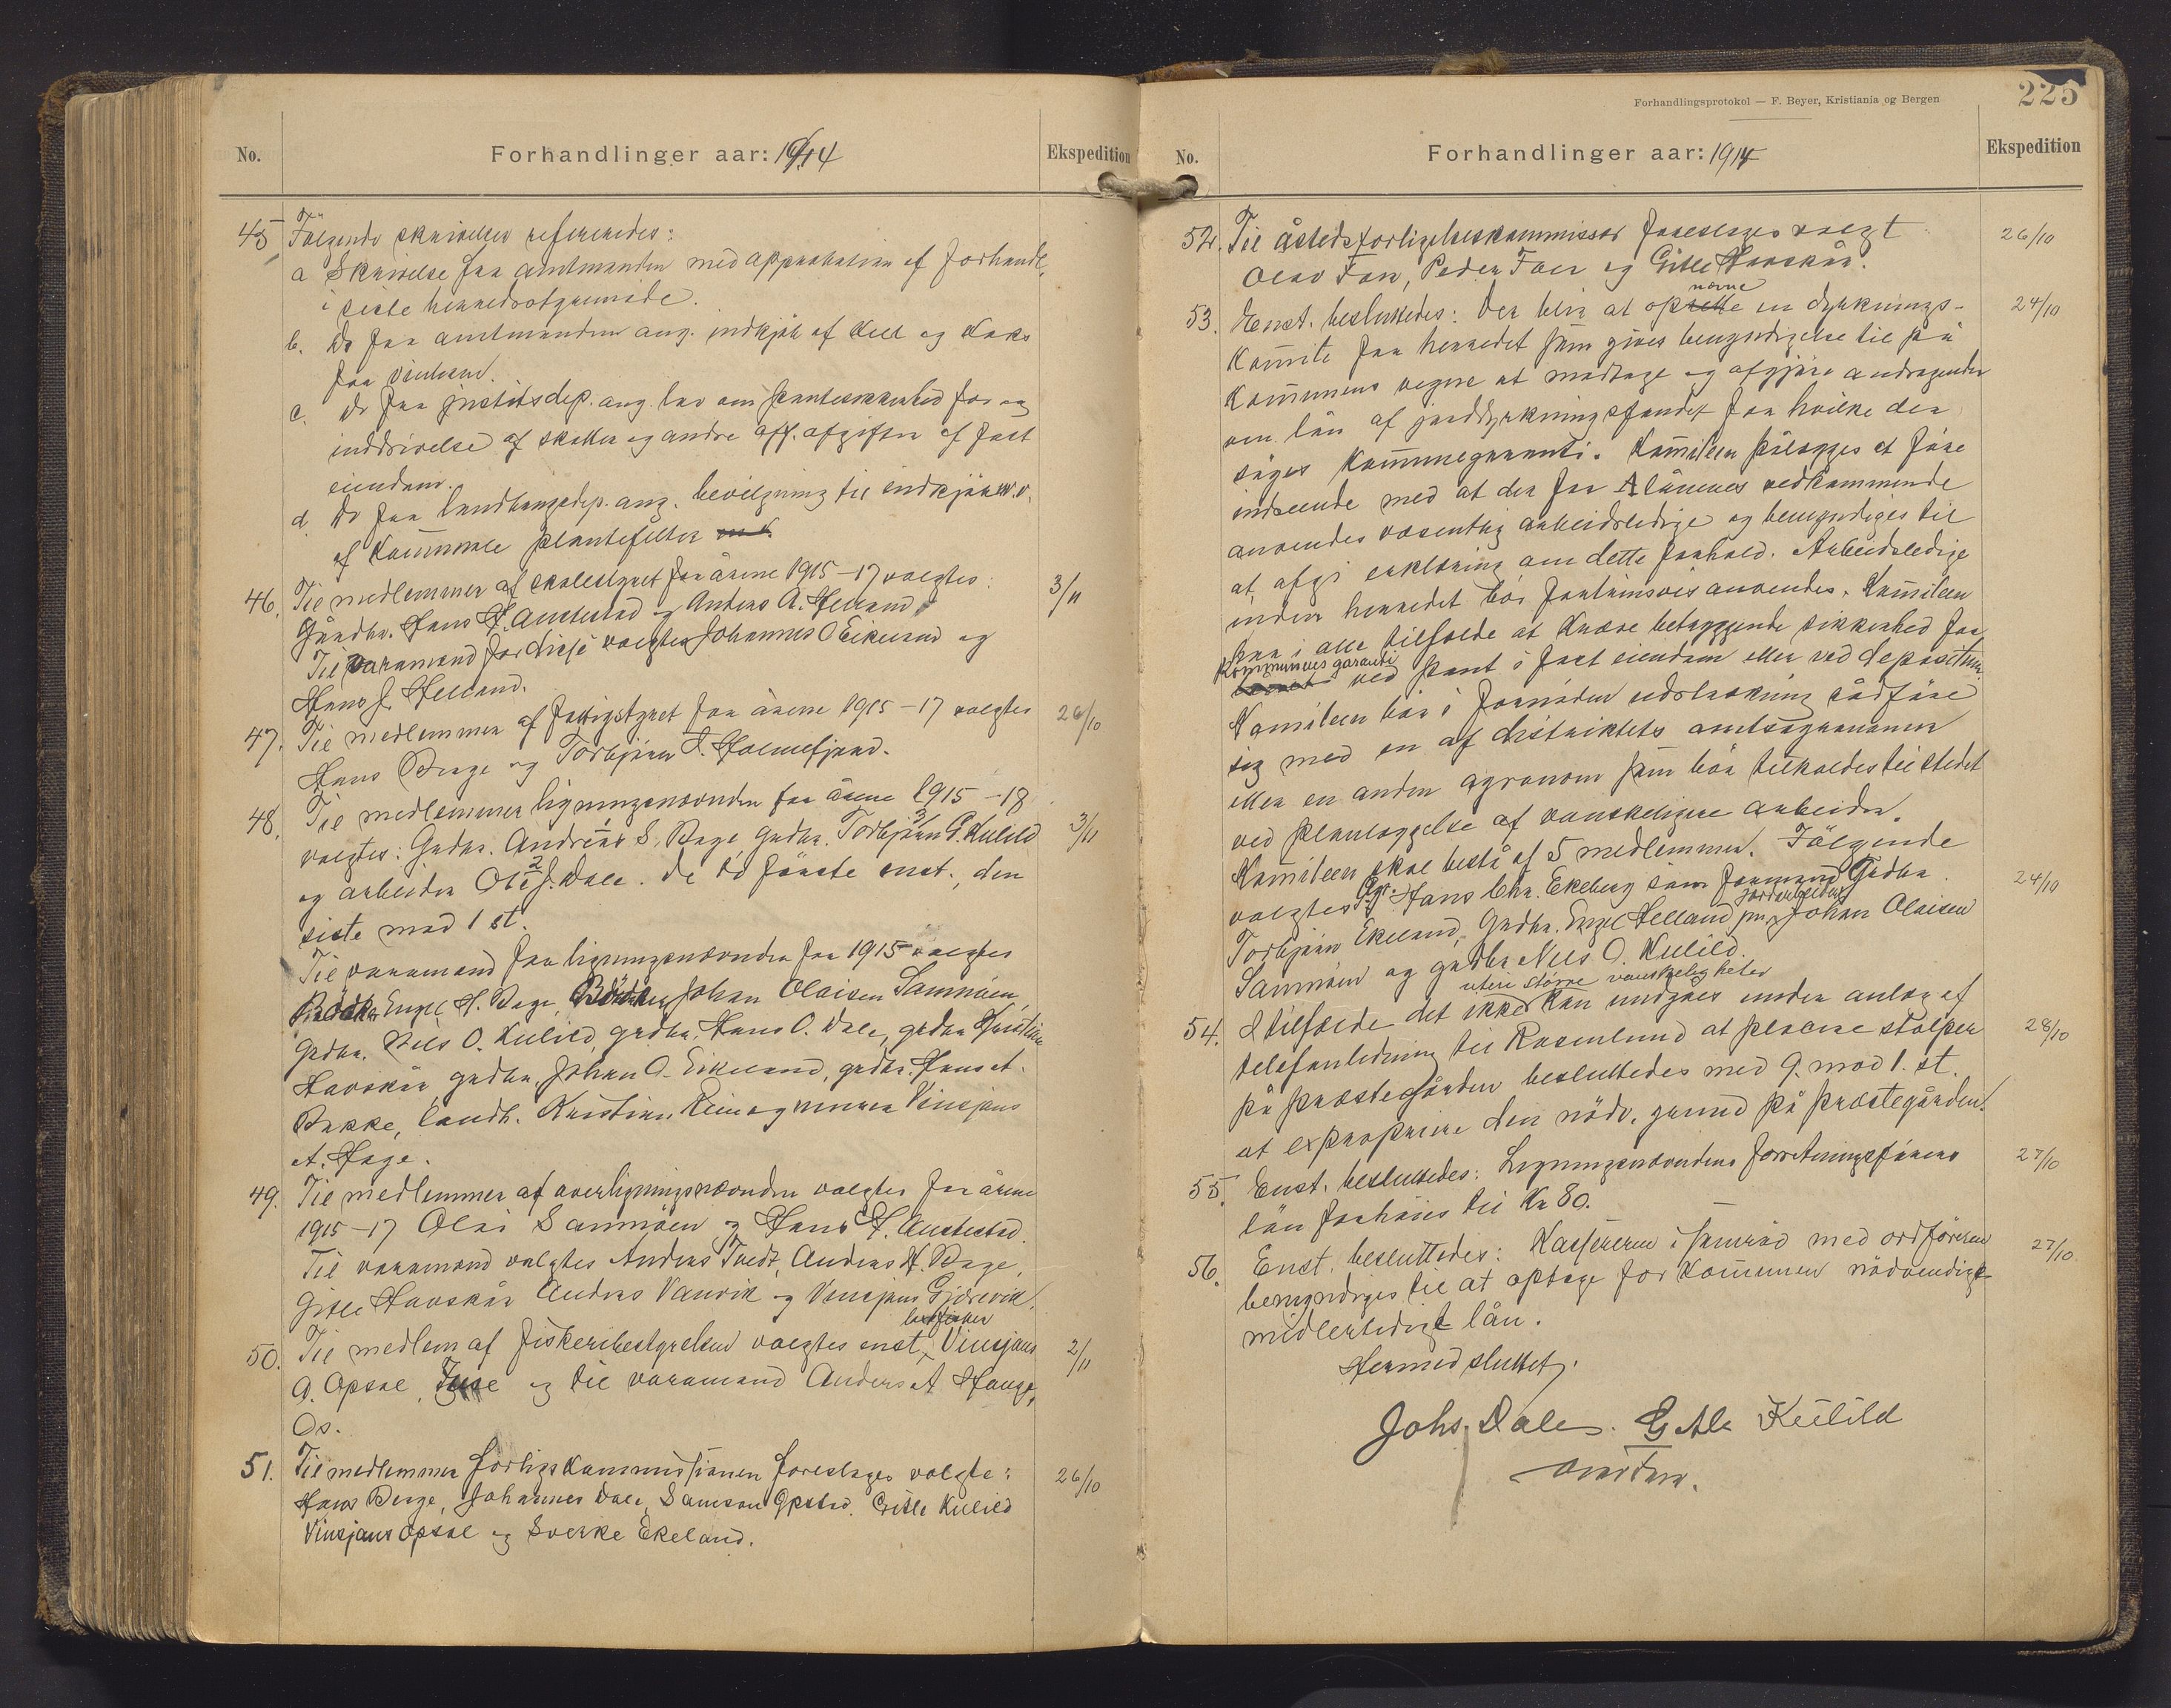 No.
Forhandlinger aar: 1914
Ekspedition
45 Følgende skrivelser refereredes:
a Skrivelse fra amtmanden med approbation af forhandl.
i siste herredsstyremöde.
b. Do fra amtmanden ang. indkjöb af kul og koks
fra
c. Do fra justitsdep. ang. lov om panteretsikkerhed for og
inddrivelse af skatter og andre off. afgifter af fast
eiendom.
d Do fra landbrugsdep. ang. bevilgning til indkjöb m.v.
af kommunale plantefelter
46. Til medlemmer af skolestyret for årene 1915-17 valgtes: 3/11
Gårdbr. Hans H. Austestad og Anders A. Helland
Til varamænd for disse valgtes Johannes O Eikeland og
Hans J. Helland.
47. Til medlemmer af fattigstyret for årene 1915-17 valgtes 26/10
Hans Berge og Torbjörn S. Holmefjord.
48. Til medlemmer ligningsnævnden for årene 1915-18
valgtes: Grdbr. Andreas S. Bage Grdbr. Torbjörn G. Kulild 3/11
og arbeider Ole J. Dale. De to förste enst., den
siste mod 1 st.
Til varamænd for ligningsnævnden for 1915 valgtes
Engel H. Bage, Johan Olaisen Samnöen,
Grdbr. Nils O. Kulild, grdbr. Hans O. Dale, grdbr Kristian
Havskår, grdbr. Johan O. Eikeland, grdbr. Hans A.
Bakke, landh. Kristian og Vinsjans
A. Hage.
49. Til medlemmer af overligningsnævnden valgtes for årene
1915-17 Olai Samnöen og Hans H. Austestad.
Til varamænd valgtes Anders Tvedt, Anders H. Bage,
Gitle Havskår Andreas Vauvik og Vinsjans Gjörevik.
50. Til medlem af fiskeribestyrelsen valgtes enst. Vinsjans 2/11
O. Opsal, Fuse og til varamand Anders A Hauge,
Os.
51. Til medlemmer forligskommissionen foreslages valgte: 26/10
Hans Berge, Johannes Dale, Samson Opstad, Gitle Kulild
Vinsjans Opsal og Sverke Ekeland.
Forhandlingsprotokol — F. Beyer, Kristiania og Bergen
225
No.
Forhandlinger aar: 1914
Ekspedition
52. Til åstedsforligelseskommissær foreslages valgt 26/10
Olav Fon, Peder Foer og Gitle Havskår.
53. Enst. besluttedes: Der blir at opnævne en dyrknings- 24/10
komite for herredet som gives bemyndigelse til på
kommunens vegne at modtage og afgjöre andragender
om lån af jorddyrkningsfondet for hvilke der
söges kommunegaranti. Komiteen pålægges at före
indseende med at der for A lånenes vedkommende
anvendes væsentlig arbeidsledige og bemyndiges til
at afgi erklæring om dette forhold. Arbeidsledige
inden herredet bör fortrinsvis anvendes. Komiteen
bör i alle tilfælde at kræve betryggende sikkerhed for
kommunens garanti ved pant i fast eiendom eller ved depositum.
Komiteen bör i fornöden udstrækning rådföre
sig med en af distriktets amtsagronomer
eller en anden agronom som bör tilkaldes til stedet
ved planlæggelse af vanskeligere arbeider.
Komiteen skal bestå af 5 medlemmer. Fölgende
valgtes Agr. Hans Chr. Ekeberg som formand Grdbr. 24/10
Torbjörn Ekeland, Grdbr. Engel Helland jnr, jordarbeider Johan Olaisen
Samnöen og grdbr Nils O. Kulild.
54. I tilfælde det ikke uten större vanskeligheter kan undgåes under anlæg af 28/10
telefonledning til Rosenlund at placere stolper
på præstegården besluttedes med 9. mod 1. st.
at expropriere den nödv. grund på præstegården.
55. Enst. besluttedes: Ligningsnævndens forretningsförers 27/10
lön forhöies til Kr 80.
56. Enst. besluttedes: Kassereren i samråd med ordföreren 27/10
bemyndiges til at optage for kommunen nödvendigt
midlertidigt lån.
Hermed sluttet.
Johs. Dale. Gitle Kulild
Olav Fon.